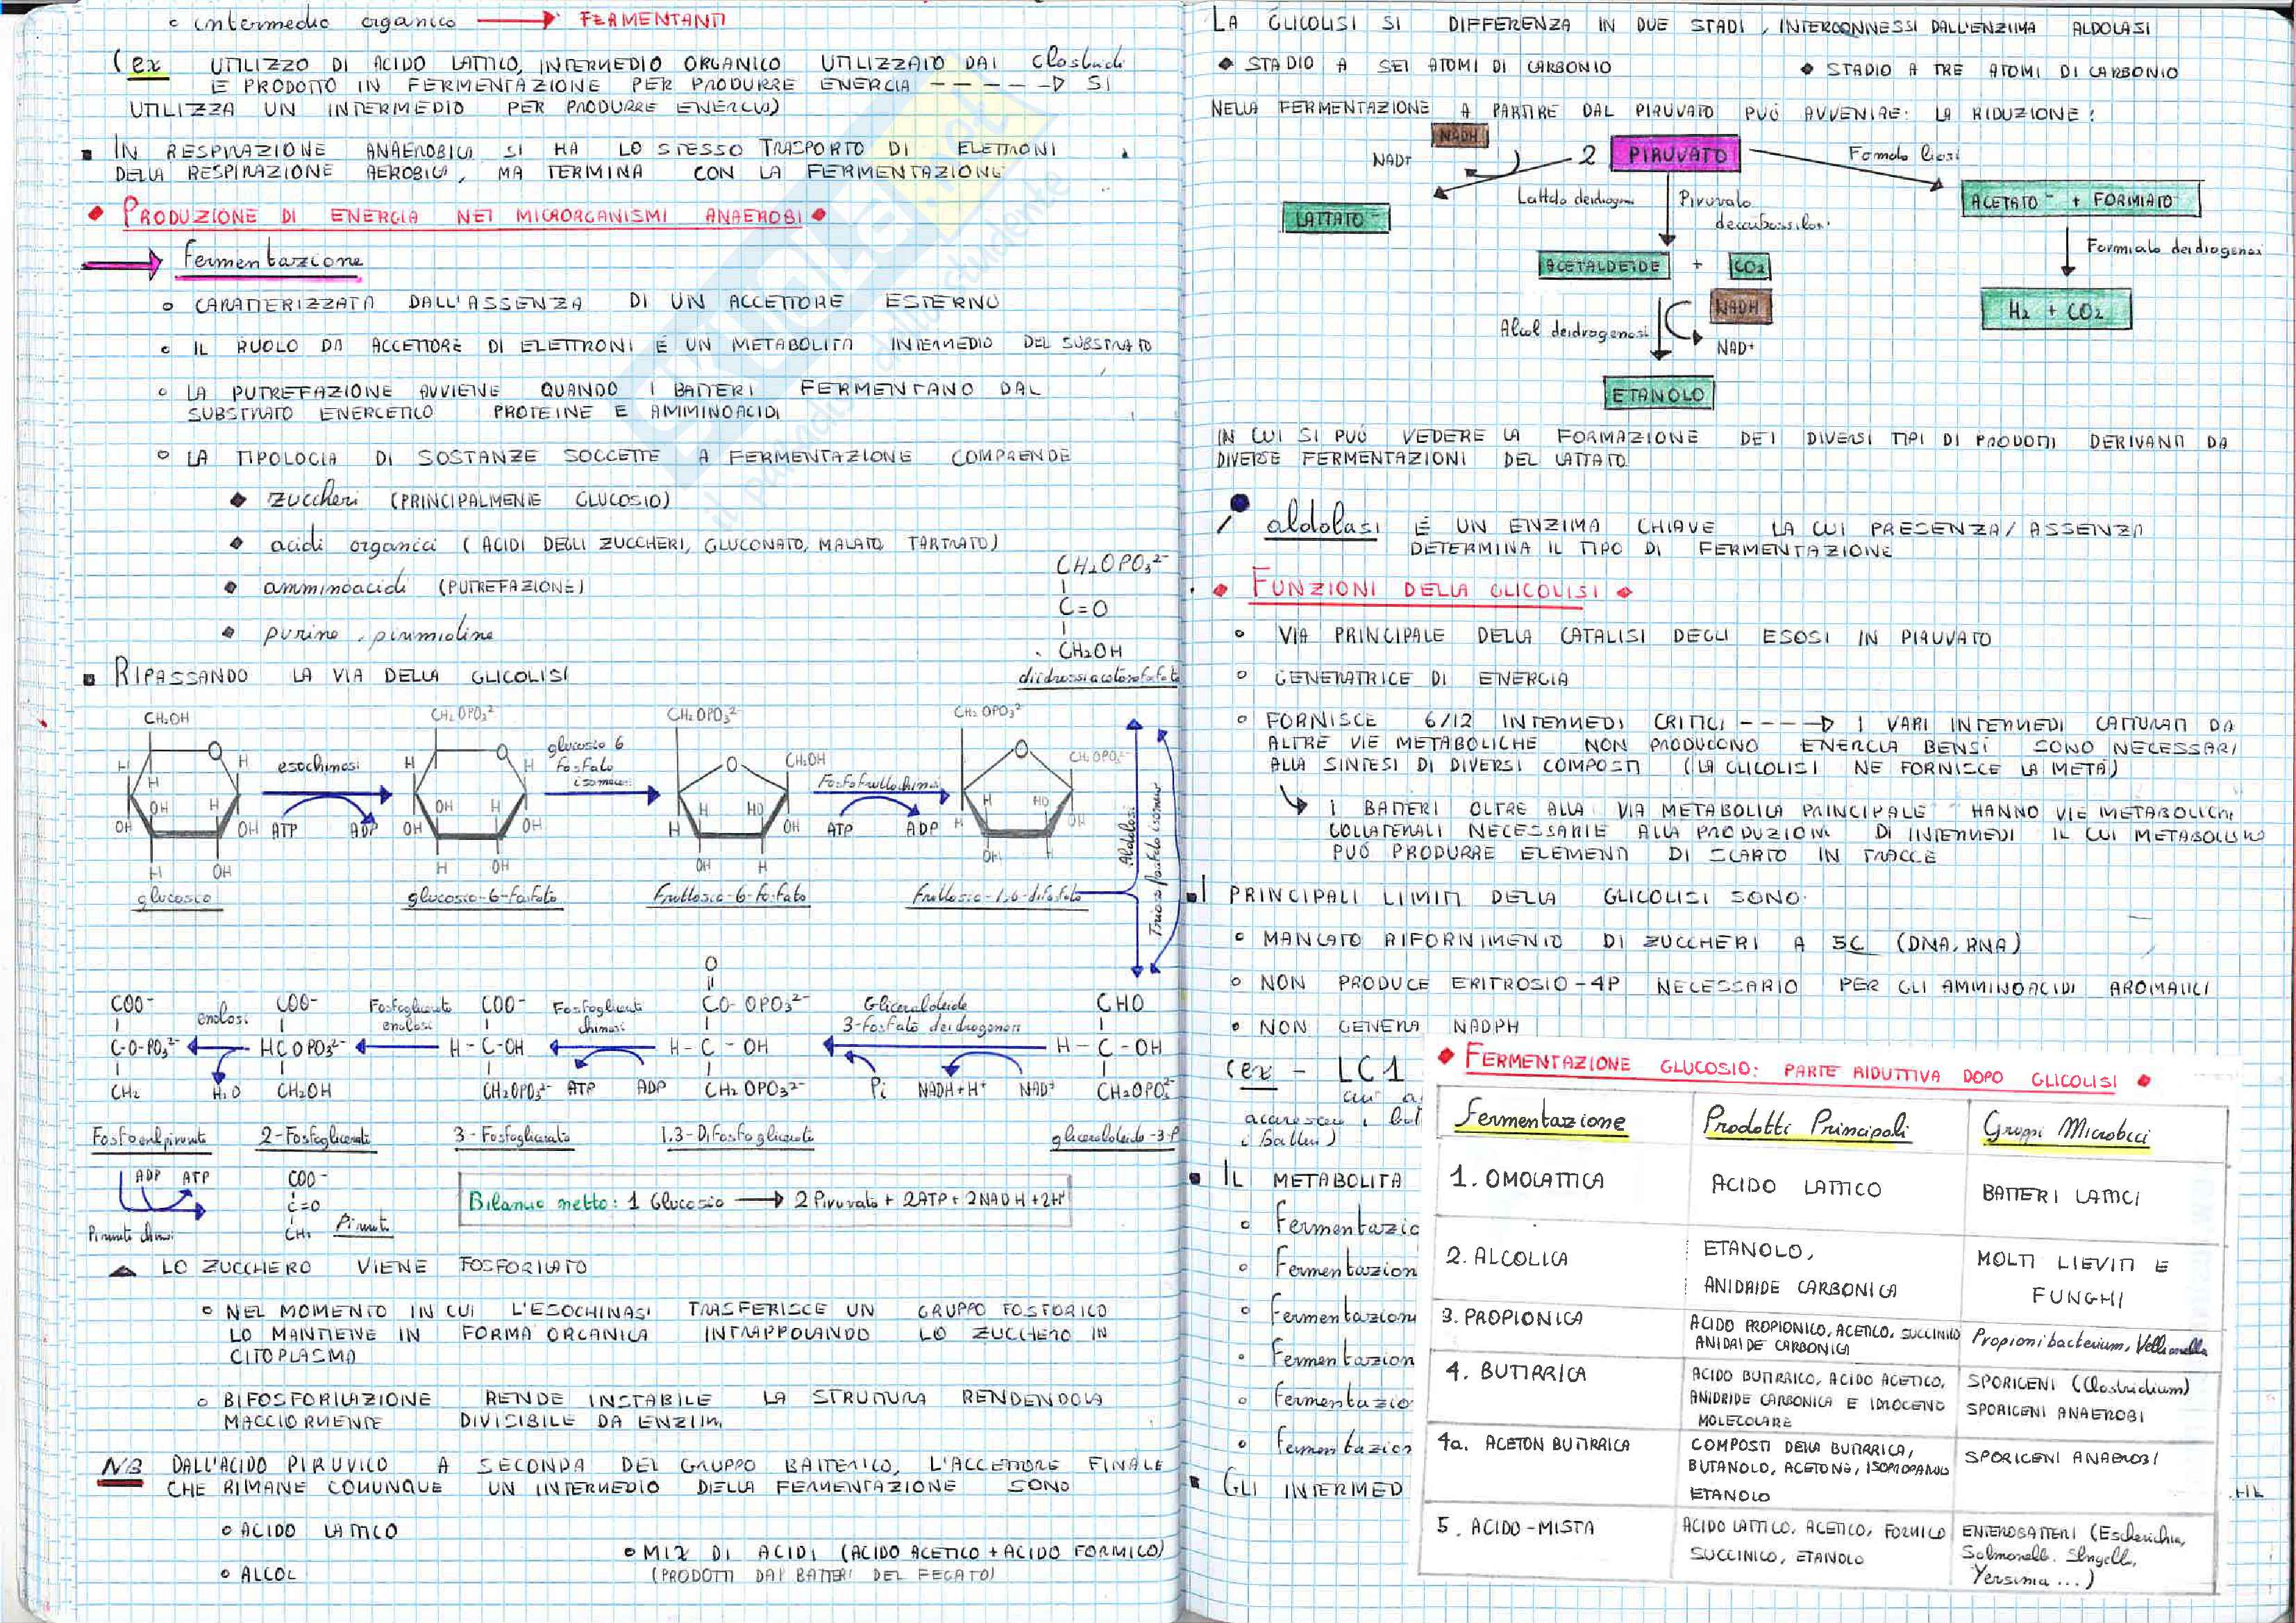 ◦ intermedio organico → FERMENTANTI
(ex UTILIZZO DI ACIDO LATTICO, INTERMEDIO ORGANICO UTILIZZATO DAI Clostridi
E PRODOTTO IN FERMENTAZIONE PER PRODURRE ENERGIA -----▷ SI
UTILIZZA UN INTERMEDIO PER PRODURRE ENERGIA)
▪ IN RESPIRAZIONE ANAEROBICA SI HA LO STESSO TRASPORTO DI ELETTRONI
DELLA RESPIRAZIONE AEROBICA, MA TERMINA CON LA FERMENTAZIONE
◆ PRODUZIONE DI ENERGIA NEI MICRORGANISMI ANAEROBI ◆
→ Fermentazione
◦ CARATTERIZZATA DALL'ASSENZA DI UN ACCETTORE ESTERNO
◦ IL RUOLO DA ACCETTORE DI ELETTRONI È UN METABOLITA INTERMEDIO DEL SUBSTRATO
◦ LA PUTREFAZIONE AVVIENE QUANDO I BATTERI FERMENTANO DAL
SUBSTRATO ENERGETICO PROTEINE E AMMINOACIDI
◦ LA TIPOLOGIA DI SOSTANZE SOGGETTE A FERMENTAZIONE COMPRENDE
◆ zuccheri (PRINCIPALMENTE GLUCOSIO)
◆ acidi organici (ACIDI DEGLI ZUCCHERI, GLUCONATO, MALATO, TARTRATO)
◆ amminoacidi (PUTREFAZIONE)
◆ purine, pirimidine
CH2OPO3²⁻
C=O
CH2OH
diidrossiacetonefosfato
▪ RIPASSANDO LA VIA DELLA GLICOLISI
CH2OH
esochinasi
ATP ADP
glucosio
CH2OPO3²⁻
glucosio 6 fosfato isomerasi
glucosio-6-fosfato
CH2OPO3²⁻
CH2OH
Fosfofruttochinasi
ATP ADP
Fruttosio-6-fosfato
CH2OPO3²⁻
CH2OPO3²⁻
Fruttosio-1,6-difosfato
Aldolasi
Trioso fosfato isomerasi
COO⁻ enolasi COO⁻ Fosfoglicerato enolasi COO⁻ Fosfoglicerato chinasi CO-OPO3²⁻ Gliceraldeide 3-fosfato deidrogenasi CHO
C-O-PO3²⁻ HCOPO3²⁻ H-C-OH H-C-OH H-C-OH
CH2 H2O CH2OH CH2OPO3²⁻ ATP ADP CH2OPO3²⁻ Pi NADH+H⁺ NAD⁺ CH2OPO3²⁻
Fosfoenolpiruvato 2-Fosfoglicerato 3-Fosfoglicerato 1.3-Difosfoglicerato gliceraldeide-3-P
ADP ATP
Piruvato chinasi
COO⁻
C=O
CH3
Piruvato
Bilancio netto: 1 Glucosio → 2 Piruvato + 2ATP + 2NADH + 2H⁺
▲ LO ZUCCHERO VIENE FOSFORILATO
◦ NEL MOMENTO IN CUI L'ESOCHINASI TRASFERISCE UN GRUPPO FOSFORICO
LO MANTIENE IN FORMA ORGANICA INTRAPPOLANDO LO ZUCCHERO IN
CITOPLASMA
◦ BIFOSFORILAZIONE RENDE INSTABILE LA STRUTTURA RENDENDOLA
MAGGIORMENTE DIVISIBILE DA ENZIMI
NB DALL'ACIDO PIRUVICO A SECONDA DEL GRUPPO BATTERICO, L'ACCETTORE FINALE
CHE RIMANE COMUNQUE UN INTERMEDIO DELLA FERMENTAZIONE SONO
◦ ACIDO LATTICO
◦ MIX DI ACIDI (ACIDO ACETICO + ACIDO FORMICO)
(PRODOTTI DAI BATTERI DEL FEGATO)
◦ ALCOL
LA GLICOLISI SI DIFFERENZA IN DUE STADI, INTERCONNESSI DALL'ENZIMA ALDOLASI
◆ STADIO A SEI ATOMI DI CARBONIO ◆ STADIO A TRE ATOMI DI CARBONIO
NELLA FERMENTAZIONE A PARTIRE DAL PIRUVATO PUÓ AVVENIRE: LA RIDUZIONE:
NADH
NAD+
2 PIRUVATO
Lattato deidrogenasi
LATTATO⁻
Piruvato decarbossilasi
ACETALDEIDE + CO2
Alcol deidrogenasi
NADH
NAD+
ETANOLO
ACETATO⁻ + FORMIATO
Formiato deidrogenasi
H2 + CO2
IN CUI SI PUÓ VEDERE LA FORMAZIONE DEI DIVERSI TIPI DI PRODOTTI DERIVANTI DA
DIVERSE FERMENTAZIONI DEL LATTATO
aldolasi È UN ENZIMA CHIAVE LA CUI PRESENZA/ASSENZA
DETERMINA IL TIPO DI FERMENTAZIONE
◆ FUNZIONI DELLA GLICOLISI ◆
◦ VIA PRINCIPALE DELLA CATALISI DEGLI ESOSI IN PIRUVATO
◦ GENERATRICE DI ENERGIA
◦ FORNISCE 6/12 INTERMEDI CRITICI ----▷ I VARI INTERMEDI CATTURATI DA
ALTRE VIE METABOLICHE NON PRODUCONO ENERGIA BENSÌ SONO NECESSARI
ALLA SINTESI DI DIVERSI COMPOSTI (LA GLICOLISI NE FORNISCE LA METÀ)
↳ I BATTERI OLTRE ALLA VIA METABOLICA PRINCIPALE HANNO VIE METABOLICHE
COLLATERALI NECESSARIE ALLA PRODUZIONE DI INTERMEDI IL CUI METABOLISMO
PUÓ PRODURRE ELEMENTI DI SCARTO IN TRACCE
▪ I PRINCIPALI LIMITI DELLA GLICOLISI SONO:
◦ MANCATO RIFORNIMENTO DI ZUCCHERI A 5C (DNA, RNA)
◦ NON PRODUCE ERITROSIO-4P NECESSARIO PER GLI AMMINOACIDI AROMATICI
◦ NON GENERA NADPH
(ex - LC1
▪ IL METABOLITA
◦ Fermentazio
◦ Fermentazion
◦ Fermentazioni
◦ Fermentazion
◦ Fermentazio
◦ Fermentazion
▪ GLI INTERMED
◆ FERMENTAZIONE GLUCOSIO: PARTE RIDUTTIVA DOPO GLICOLISI ◆
Fermentazione Prodotti Principali Gruppi Microbici
1. OMOLATTICA ACIDO LATTICO BATTERI LATTICI
2. ALCOLICA ETANOLO, ANIDRIDE CARBONICA MOLTI LIEVITI E FUNGHI
3. PROPIONICA ACIDO PROPIONICO, ACETICO, SUCCINICO ANIDRIDE CARBONICA Propionibacterium, Veillonella
4. BUTIRRICA ACIDO BUTIRRICO, ACIDO ACETICO, ANIDRIDE CARBONICA E IDROGENO MOLECOLARE SPORIGENI (Clostridium) SPORIGENI ANAEROBI
4a. ACETON BUTIRRICA COMPOSTI DELLA BUTIRRICA, BUTANOLO, ACETONE, ISOPROPANOLO ETANOLO SPORIGENI ANAEROBI
5. ACIDO-MISTA ACIDO LATTICO, ACETICO, FORMICO SUCCINICO, ETANOLO ENTEROBATTERI (Escherichia, Salmonella, Shigella, Yersinia ...)